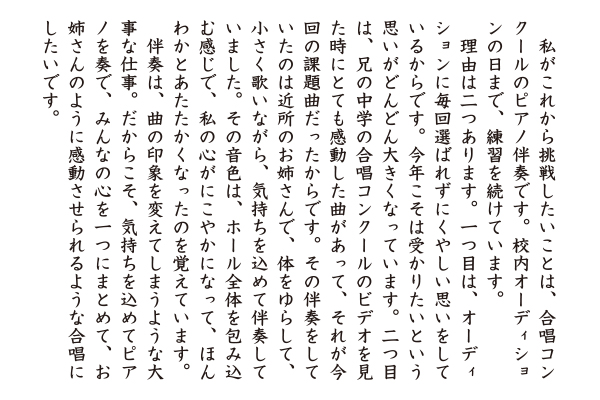 私がこれから挑戦したいことは、合唱コン
クールのピアノ伴奏です。校内オーディショ
ンの日まで、練習を続けています。
　理由は二つあります。一つ目は、オーディ
ションに毎回選ばれずにくやしい思いをして
いるからです。今年こそは受かりたいという
思いがどんどん大きくなっています。二つ目
は、兄の中学の合唱コンクールのビデオを見
た時にとても感動した曲があって、それが今
回の課題曲だったからです。その伴奏をして
いたのは近所のお姉さんで、体をゆらして、
小さく歌いながら、気持ちを込めて伴奏して
いました。その音色は、ホール全体を包み込
む感じで、私の心がにこやかになって、ほん
わかとあたたかくなったのを覚えています。
　伴奏は、曲の印象を変えてしまうような大
事な仕事。だからこそ、気持ちを込めてピア
ノを奏で、みんなの心を一つにまとめて、お
姉さんのように感動させられるような合唱に
したいです。